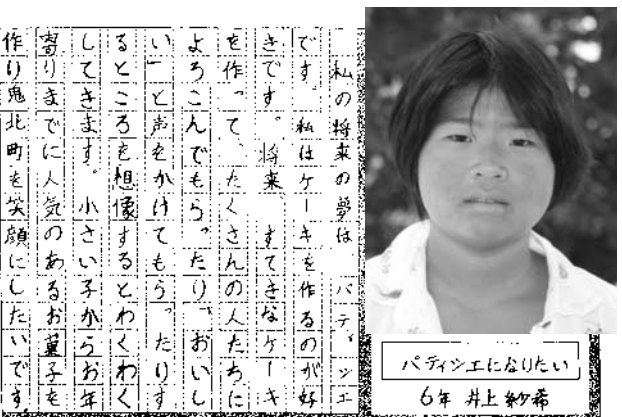 私の将来の夢は、パティシエ
です。私はケーキを作るのが好
きです。将来、すてきなケーキ
を作って、たくさんの人たちに
よろこんでもらったり、「おいし
い」と声をかけてもらったりす
るところを想像するとわくわく
してきます。小さい子からお年
寄りまでに人気のあるお菓子を
作り鬼北町を笑顔にしたいです。
パティシエになりたい
6年 井上 紗希